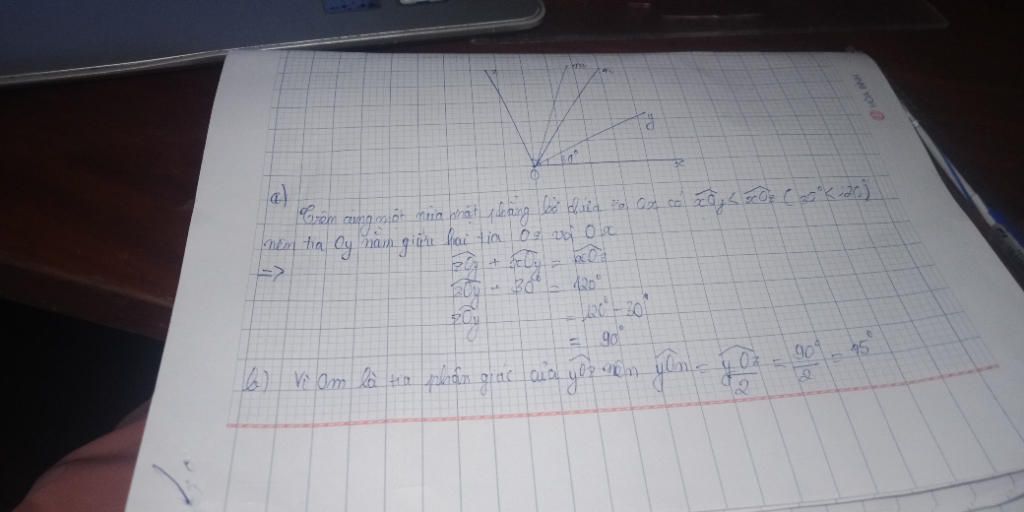 z m n
y
O 30° x
a)
Trên cùng một nửa mặt phẳng bờ chứa tia Ox có xOy < xOz (30° < 120°)
nên tia Oy nằm giữa hai tia Oz và Ox
=> zOy + xOy = xOz
zOy + 30° = 120°
zOy = 120° - 30°
= 90°
b) Vì Om là tia phân giác của yOz nên yOm = yOz/2 = 90°/2 = 45°